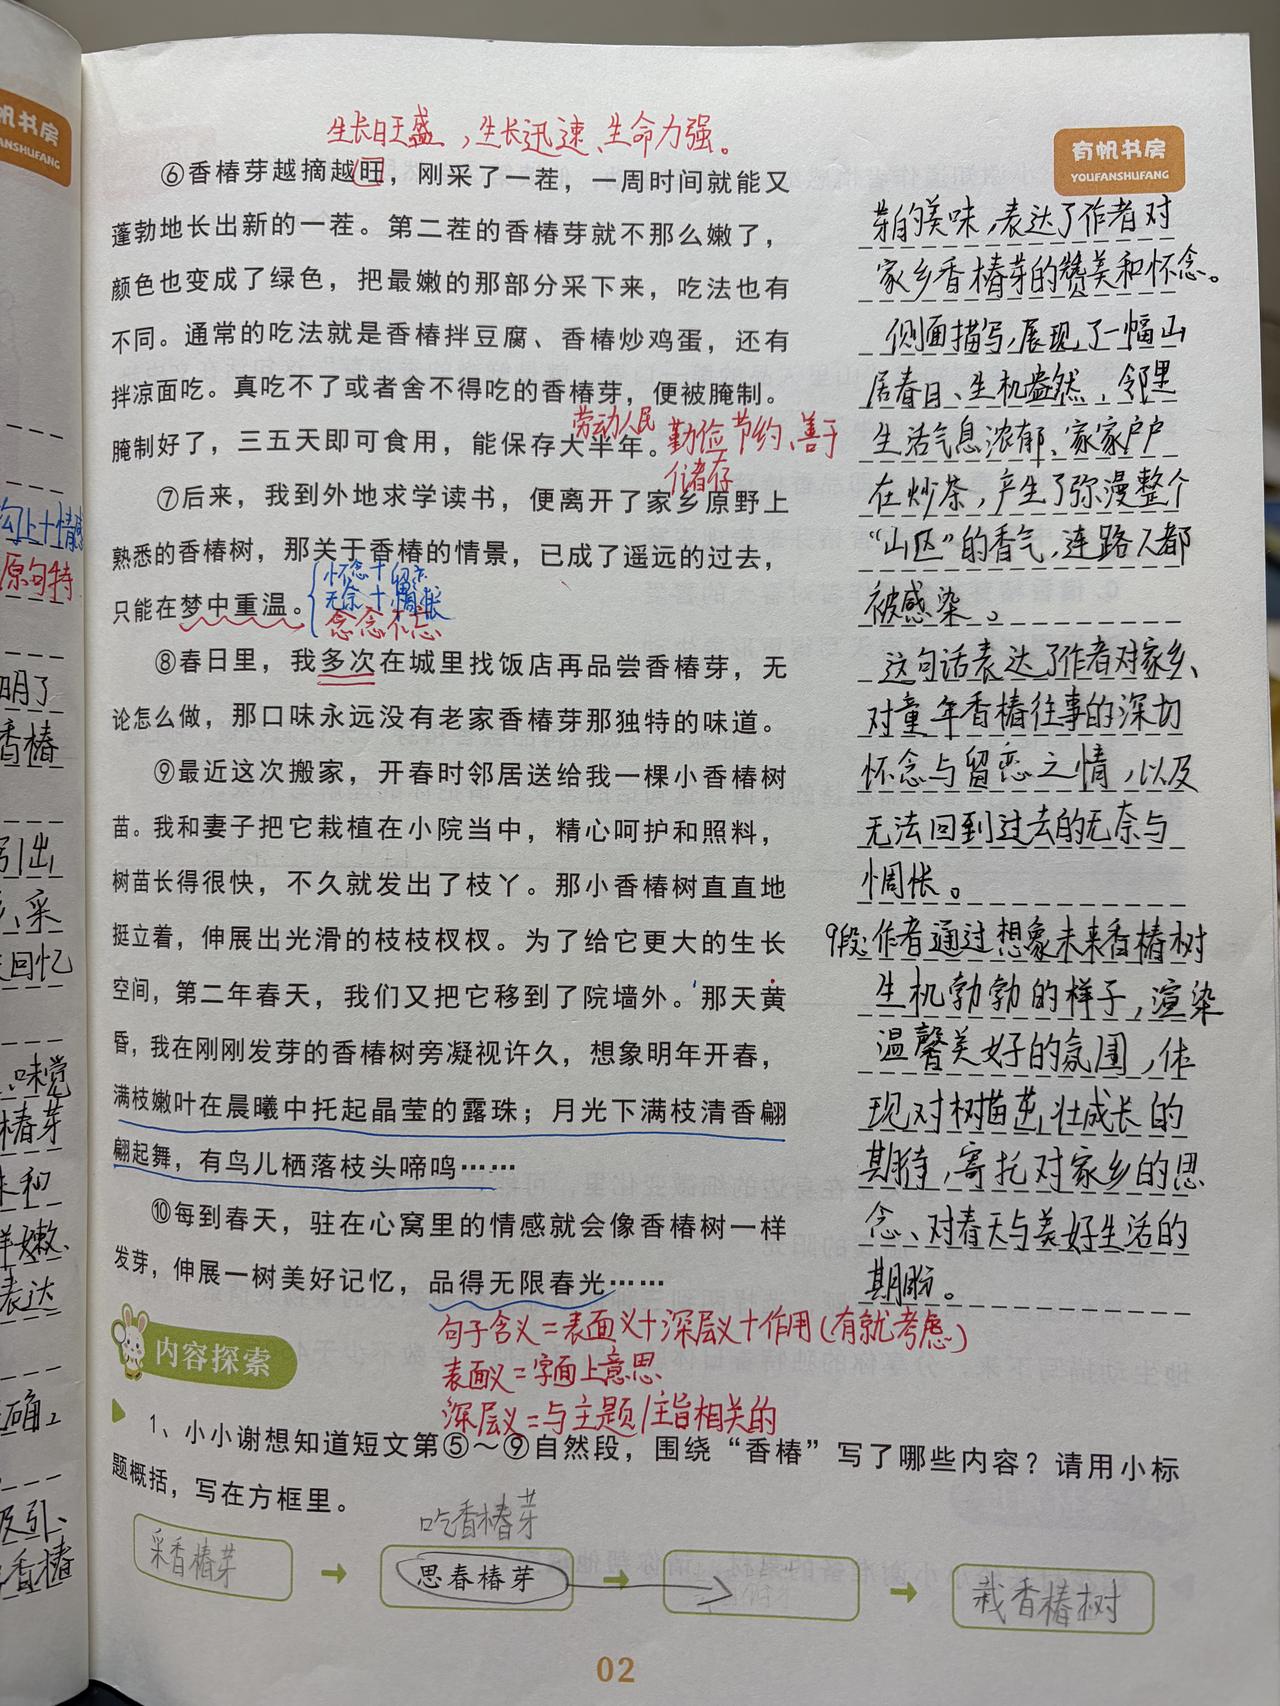 帆书房
ANSHUFANG
勾上+情感
原句特
明了
香椿
引出
、采
回忆
味觉
椿芽
味和
样嫩、
表达
正确。
吸引、
香椿
有帆书房
YOUFANSHUFANG
生长旺盛，生长迅速、生命力强。
⑥香椿芽越摘越旺，刚采了一茬，一周时间就能又
蓬勃地长出新的一茬。第二茬的香椿芽就不那么嫩了，
颜色也变成了绿色，把最嫩的那部分采下来，吃法也有
不同。通常的吃法就是香椿拌豆腐、香椿炒鸡蛋，还有
拌凉面吃。真吃不了或者舍不得吃的香椿芽，便被腌制。
腌制好了，三五天即可食用，能保存大半年。
劳动人民勤俭节约、善于
储存
⑦后来，我到外地求学读书，便离开了家乡原野上
熟悉的香椿树，那关于香椿的情景，已成了遥远的过去，
只能在梦中重温。
怀念+留恋
无奈+惆怅
念念不忘
⑧春日里，我多次在城里找饭店再品尝香椿芽，无
论怎么做，那口味永远没有老家香椿芽那独特的味道。
⑨最近这次搬家，开春时邻居送给我一棵小香椿树
苗。我和妻子把它栽植在小院当中，精心呵护和照料，
树苗长得很快，不久就发出了枝丫。那小香椿树直直地
挺立着，伸展出光滑的枝枝杈杈。为了给它更大的生长
空间，第二年春天，我们又把它移到了院墙外。那天黄
昏，我在刚刚发芽的香椿树旁凝视许久，想象明年开春，
满枝嫩叶在晨曦中托起晶莹的露珠；月光下满枝清香翩
翩起舞，有鸟儿栖落枝头啼鸣……
⑩每到春天，驻在心窝里的情感就会像香椿树一样
发芽，伸展一树美好记忆，品得无限春光……
芽的美味，表达了作者对
家乡香椿芽的赞美和怀念。
侧面描写，展现了一幅山
居春日、生机盎然、邻里
生活气息浓郁、家家户户
在炒茶，产生了弥漫整个
“山区”的香气，连路人都
被感染。
这句话表达了作者对家乡、
对童年香椿往事的深切
怀念与留恋之情，以及
无法回到过去的无奈与
惆怅。
9段：作者通过想象未来香椿树
生机勃勃的样子，渲染
温馨美好的氛围，体
现对树苗茁壮成长的
期待，寄托对家乡的思
念、对春天与美好生活的
期盼。
句子含义=表面义+深层义+作用(有就考虑)
表面义=字面上意思
深层义=与主题/主旨相关的
内容探索
1、小小谢想知道短文第⑤～⑨自然段，围绕“香椿”写了哪些内容？请用小标
题概括，写在方框里。
吃香椿芽
采香椿芽
思春椿芽
栽香椿树
02